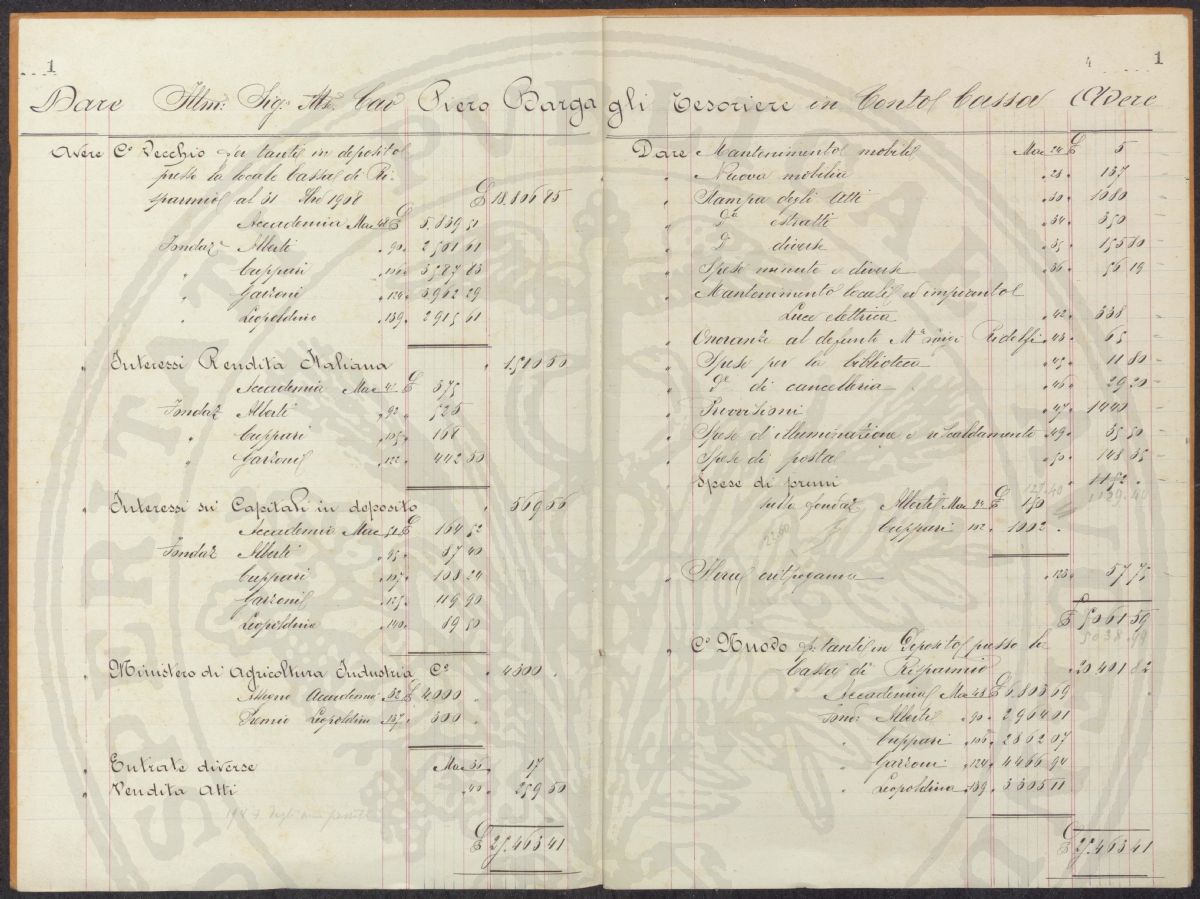 1
Dare Illmo Sig. Mse. Cav Piero Barga
Avere Co Vecchio per tanti in deposito
presso la locale Cassa di Ri-
sparmio al 31 Dbre 1908 £ 18.806 85
Accademia Mae 48 £ 5.839 51
Fondaz Alberti " 90 " 2501 61
" Cuppari " 3587 83
" Garzoni " 124 " 3962 29
" Leopoldino " 139 " 2915 61
" Interessi Rendita Italiana " 1510 50
Accademia Mae £ 375
Fondaz Alberti " 92 " 525
" Cuppari " 105 " 168
" Garzoni " 122 " 442 50
" Interessi su' Capitali in deposito " 569 56
Accademia Mae 51 £ 164 52
Fondaz Alberti " 95 " 87 40
Cuppari " 107 " 108 24
Garzoni " 125 " 119 90
Leopoldino " 140 " 89 50
" Ministero di Agricoltura Industria Co " 4300
Assegno Accademia 32 £ 4000
Premio Leopoldino " 137 " 300
" Entrate diverse Mae 36 " 17
" Vendita Atti " 40 " 259 50
£ 25.463 41
4 1
gli Tesoriere in Conto Cassa Avere
Dare Mantenimento mobili Mae 24 £ 5
" Nuova mobilia " 28 " 137
" Stampa degli Atti " 30 " 1080
" Do estratti " 34 " 350
" Do diverse " 35 " 155 80
" Spese minute e diverse " 36 " 56 19
" Mantenimento locali ed impianto
Luce elettrica " 42 " 338
" Onoranze al defunto Mse Luigi Ridolfi " 43 " 65
" Spese per la biblioteca " 45 " 11 80
" Do di cancelleria " 46 " 29 20
" Provvisioni " 47 " 1440
" Spese d'illuminazione e riscaldamento " 49 " 35 50
" Spese di posta " 50 " 148 35
" Spese di premi " 1152
127.40 1129.40
sulle fondaz Alberti Mae 94 £ 150
Cuppari 102 " 1002
22.60
" 123 " 57 75
£ 5061 59
5038 99
Co Nuovo per tanti in Deposito presso la
Cassa di Risparmio " 20 401 82
Accademia Mae 48 £ 6.803 69
Fond. Alberti " 90 " 2964 01
" Cuppari " 106 " 2862 07
" Garzoni " 124 " 4466 94
" Leopoldino " 139 " 3305 11
£ 25.463 41